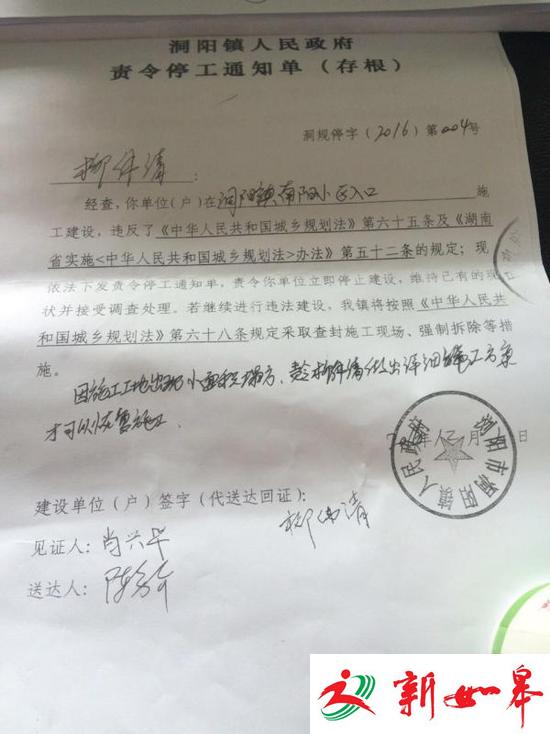 洞阳镇人民政府
责令停工通知单（存根）
洞规停字（2016）第004号
柳伟清：
经查，你单位（户）在洞阳镇南阳小区入口施
工建设，违反了《中华人民共和国城乡规划法》第六十五条及《湖南
省实施<中华人民共和国城乡规划法>办法》第五十二条的规定；现
依法下发责令停工通知单，责令你单位立即停止建设，维持已有的现
状并接受调查处理。若继续进行违法建设，我镇将按照《中华人民共
和国城乡规划法》第六十八条规定采取查封施工现场、强制拆除等措
施。
因施工工地出现小面积塌方，柳伟清做出详细施工方案
才可以恢复施工
年12月日
浏阳市洞阳镇人民政府
建设单位（户）签字（代送达回证）：
柳伟清
见证人：肖兴华
送达人：陈
新如皋